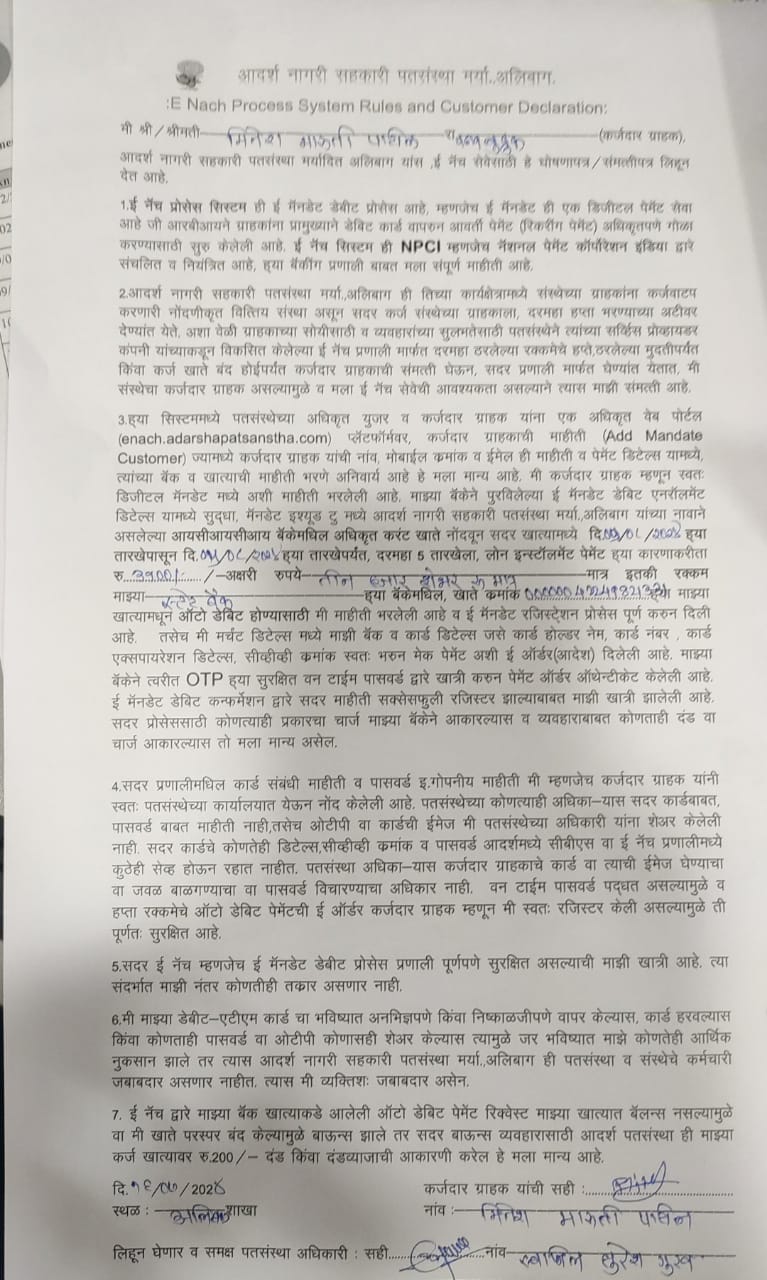 आदर्श नागरी सहकारी पतसंस्था मर्या.,अलिबाग.
:E Nach Process System Rules and Customer Declaration:
मी श्री/श्रीमती मारुती पाटील रा. (कर्जदार ग्राहक),
आदर्श नागरी सहकारी पतसंस्था मर्यादित अलिबाग यांस ,ई नॅच सेवेसाठी हे घोषणापत्र/संमत्तीपत्र लिहून
देत आहे.
1.ई नॅच प्रोसेस सिस्टम ही ई मॅनडेट डेबीट प्रोसेस आहे, म्हणजेच ई मॅनडेट ही एक डिजीटल पेमेंट सेवा
आहे जी आरबीआयने ग्राहकांना प्रामुख्याने डेबिट कार्ड वापरुन आवर्ती पेमेंट (रिकरींग पेमेंट) अधिकृतपणे गोळा
करण्यासाठी सुरु केलेली आहे. ई नॅच सिस्टम ही NPCI म्हणजेच नॅशनल पेमेंट कॉर्पोरेशन इंडिया द्वारे
संचलित व नियंत्रित आहे, ह्या बँकींग प्रणाली बाबत मला संपूर्ण माहीती आहे.
2.आदर्श नागरी सहकारी पतसंस्था मर्या.,अलिबाग ही तिच्या कार्यक्षेत्रामध्ये संस्थेच्या ग्राहकांना कर्जवाटप
करणारी नोंदणीकृत वित्तिय संस्था असून सदर कर्ज संस्थेच्या ग्राहकाला, दरमहा हप्ता भरण्याच्या अटीवर
देण्यांत येते. अशा वेळी ग्राहकाच्या सोयीसाठी व व्यवहारांच्या सुलमतेसाठी पतसंस्थेने त्यांच्या सर्व्हिस प्रोव्हायडर
कंपनी यांच्याकडून विकसित केलेल्या ई नॅच प्रणाली मार्फत दरमहा ठरलेल्या रक्कमेचे हप्ते,ठरलेल्या मुदतीपर्यंत
किंवा कर्ज खाते बंद होईपर्यंत कर्जदार ग्राहकाची संमत्ती घेऊन, सदर प्रणाली मार्फत घेण्यांत येतात. मी
संस्थेचा कर्जदार ग्राहक असल्यामुळे व मला ई नॅच सेवेची आवश्यकता असल्याने त्यास माझी संमत्ती आहे.
3.ह्या सिस्टममध्ये पतसंस्थेच्या अधिकृत युजर व कर्जदार ग्राहक यांना एक अधिकृत वेब पोर्टल
(enach.adarshapatsanstha.com) प्लॅटफॉर्मवर, कर्जदार ग्राहकाची माहीती (Add Mandate
Customer) ज्यामध्ये कर्जदार ग्राहक यांची नांव, मोबाईल क्रमांक व ईमेल ही माहीती व पेमेंट डिटेल्स यामध्ये,
त्यांच्या बँक व खात्याची माहीती भरणे अनिवार्य आहे हे मला मान्य आहे. मी कर्जदार ग्राहक म्हणून स्वतः
डिजीटल मॅनडेट मध्ये अशी माहीती भरलेली आहे. माझ्या बँकेने पुरविलेल्या ई मॅनडेट डेबिट एनरॉलमेंट
डिटेल्स यामध्ये सुद्धा, मॅनडेट इश्यूड टु मध्ये आदर्श नागरी सहकारी पतसंस्था मर्या.,अलिबाग यांच्या नावाने
असलेल्या आयसीआयसीआय बँकेमधिल अधिकृत करंट खाते नोंदवून सदर खात्यामध्ये दि. ह्या
तारखेपासून दि. ह्या तारखेपर्यंत, दरमहा 5 तारखेला, लोन इन्स्टॉलमेंट पेमेंट ह्या कारणाकरीता
रु. /-अक्षरी रुपये तीन हजार रु मात्र मात्र इतकी रक्कम
माझ्या स्टेट बँक ह्या बँकेमधिल, खाते क्रमांक ह्या माझ्या
खात्यामधून ऑटो डेबिट होण्यासाठी मी माहीती भरलेली आहे व ई मॅनडेट रजिस्ट्रेशन प्रोसेस पूर्ण करुन दिली
आहे. तसेच मी मर्चंट डिटेल्स मध्ये माझी बँक व कार्ड डिटेल्स जसे कार्ड होल्डर नेम, कार्ड नंबर , कार्ड
एक्सपायरेशन डिटेल्स, सीव्हीव्ही क्रमांक स्वतः भरुन मेक पेमेंट अशी ई ऑर्डर(आदेश) दिलेली आहे. माझ्या
बँकेने त्वरीत OTP ह्या सुरक्षित वन टाईम पासवर्ड द्वारे खात्री करुन पेमेंट ऑर्डर ऑथेन्टीकेट केलेली आहे.
ई मॅनडेट डेबिट कन्फर्मेशन द्वारे सदर माहीती सक्सेसफुली रजिस्टर झाल्याबाबत माझी खात्री झालेली आहे.
सदर प्रोसेससाठी कोणत्याही प्रकारचा चार्ज माझ्या बँकेने आकारल्यास व व्यवहाराबाबत कोणताही दंड वा
चार्ज आकारल्यास तो मला मान्य असेल.
4.सदर प्रणालीमधिल कार्ड संबंधी माहीती व पासवर्ड इ.गोपनीय माहीती मी म्हणजेच कर्जदार ग्राहक यांनी
स्वतः पतसंस्थेच्या कार्यालयात येऊन नोंद केलेली आहे. पतसंस्थेच्या कोणत्याही अधिका-यास सदर कार्डबाबत,
पासवर्ड बाबत माहीती नाही,तसेच ओटीपी वा कार्डची ईमेज मी पतसंस्थेच्या अधिकारी यांना शेअर केलेली
नाही. सदर कार्डचे कोणतेही डिटेल्स,सीव्हीव्ही क्रमांक व पासवर्ड आदर्शमध्ये सीबीएस वा ई नॅच प्रणालीमध्ये
कुठेही सेव्ह होऊन रहात नाहीत. पतसंस्था अधिका-यास कर्जदार ग्राहकाचे कार्ड वा त्याची ईमेज घेण्याचा
वा जवळ बाळगण्याचा वा पासवर्ड विचारण्याचा अधिकार नाही. वन टाईम पासवर्ड पद्धत असल्यामुळे व
हप्ता रक्कमेचे ऑटो डेबिट पेमेंटची ई ऑर्डर कर्जदार ग्राहक म्हणून मी स्वतः रजिस्टर केली असल्यामुळे ती
पूर्णतः सुरक्षित आहे.
5.सदर ई नॅच म्हणजेच ई मॅनडेट डेबीट प्रोसेस प्रणाली पूर्णपणे सुरक्षित असल्याची माझी खात्री आहे. त्या
संदर्भात माझी नंतर कोणतीही तक्रार असणार नाही.
6.मी माझ्या डेबीट–एटीएम कार्ड चा भविष्यात अनभिज्ञपणे किंवा निष्काळजीपणे वापर केल्यास, कार्ड हरवल्यास
किंवा कोणताही पासवर्ड वा ओटीपी कोणासही शेअर केल्यास त्यामुळे जर भविष्यात माझे कोणतेही आर्थिक
नुकसान झाले तर त्यास आदर्श नागरी सहकारी पतसंस्था मर्या.,अलिबाग ही पतसंस्था व संस्थेचे कर्मचारी
जबाबदार असणार नाहीत. त्यास मी व्यक्तिशः जबाबदार असेन.
7. ई नॅच द्वारे माझ्या बँक खात्याकडे आलेली ऑटो डेबिट पेमेंट रिक्वेस्ट माझ्या खात्यात बॅलन्स नसल्यामुळे
वा मी खाते परस्पर बंद केल्यामुळे बाऊन्स झाले तर सदर बाऊन्स व्यवहारासाठी आदर्श पतसंस्था ही माझ्या
कर्ज खात्यावर रु.200/– दंड किंवा दंडव्याजाची आकारणी करेल हे मला मान्य आहे.
दि. कर्जदार ग्राहक यांची सही :
स्थळ : शाखा नांव : मारुती पाटील
लिहून घेणार व समक्ष पतसंस्था अधिकारी : सही नांव सुरेश